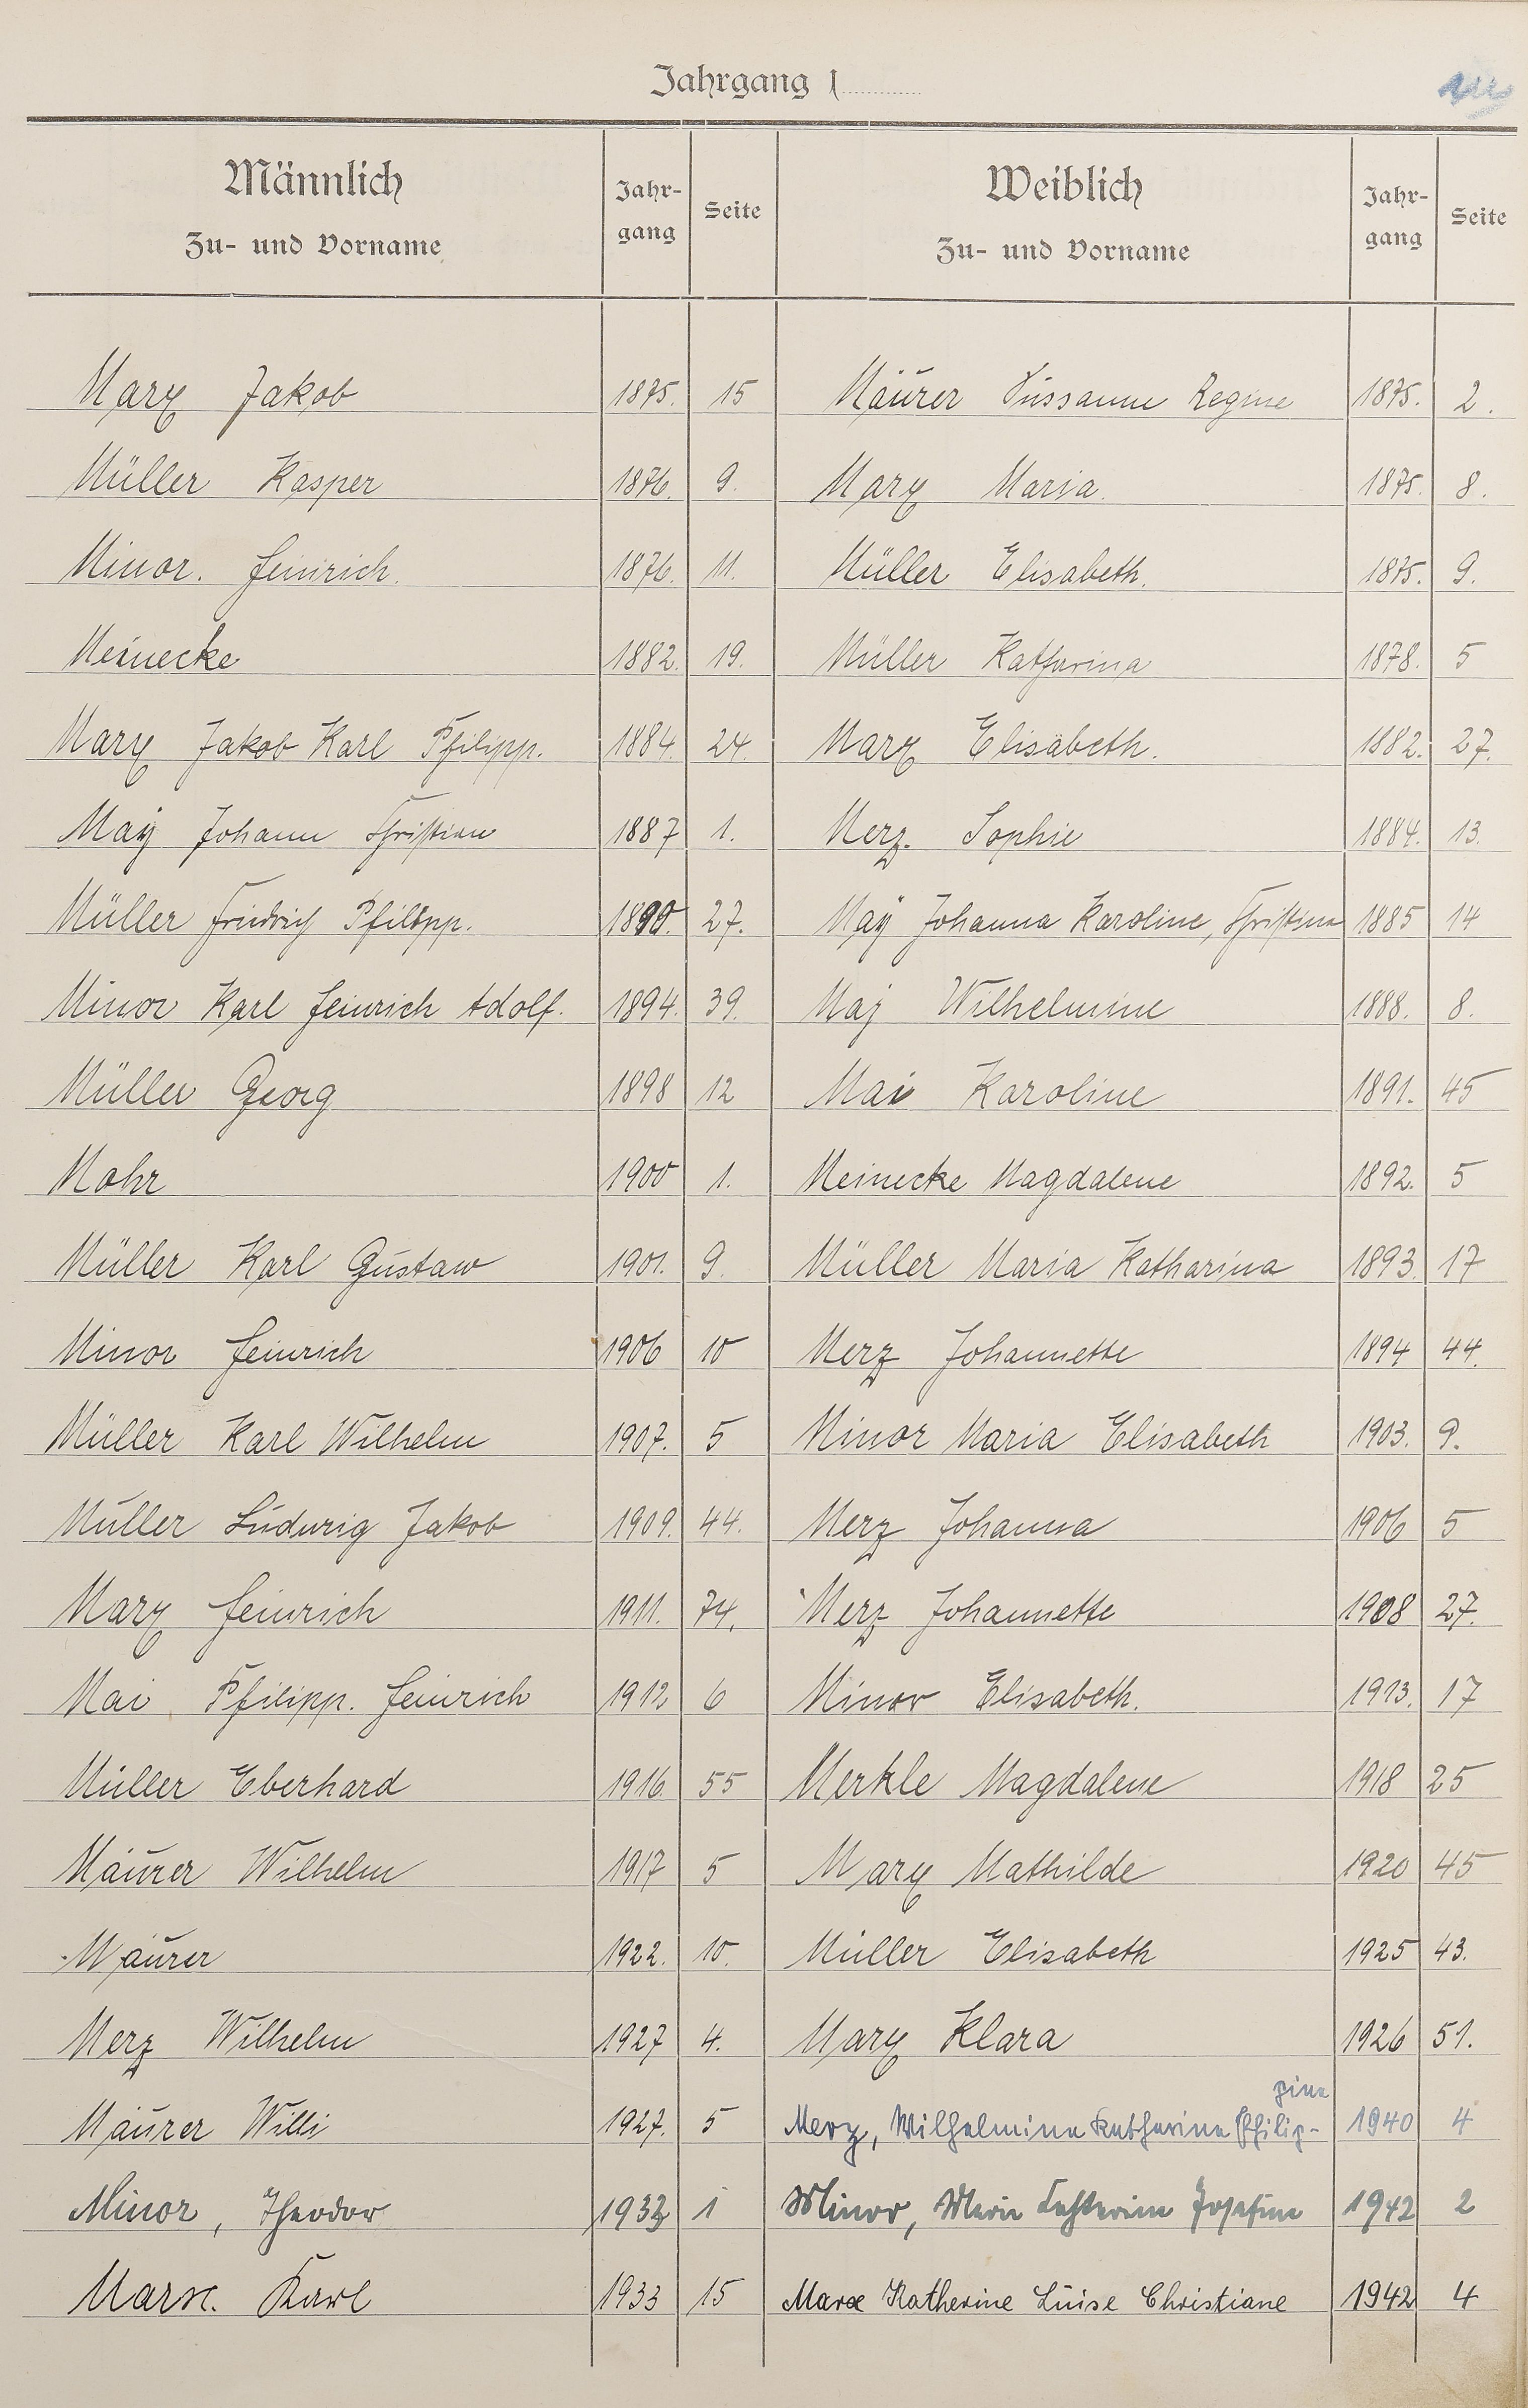 Jahrgang 1
Männlich
Zu- und Vorname
Jahr-
gang
Seite
Weiblich
Zu- und Vorname
Jahr-
gang
Seite
Marx Jakob 1875. 15 Mäurer Sussanne Regine 1875. 2.
Müller Kasper 1876. 9. Marx Maria. 1875. 8.
Minor. Heinrich. 1876. 11. Müller Elisabeth. 1875. 9.
Meinecke 1882. 19. Müller Katharina 1878. 5
Marx Jakob Karl Philipp. 1884. 24. Marx Elisabeth. 1882. 27.
Maÿ Johann Christian 1887 1. Merz. Sophie 1884. 13.
Müller Friedrich Philipp. 1890. 27. Maÿ Johanna Karoline, Christina 1885 14
Minor Karl Heinrich Adolf. 1894. 39. Maj Wilhelmine 1888. 8.
Müller Georg 1898 12 Mai Karoline 1891. 45
Mohr 1900 1. Meinecke Magdalene 1892. 5
Müller Karl Gustaw 1901. 9. Müller Maria Katharina 1893. 17
Minor Heinrich 1906 10 Merz Johannette 1894 44.
Müller Karl Wilhelm 1907. 5 Minor Maria Elisabeth 1903. 9.
Müller Ludwig Jakob 1909. 44. Merz Johanna 1906 5
Marx Heinrich 1911. 74. Merz Johannette 1908 27.
Mai Philipp. Heinrich 1912 6 Minor Elisabeth. 1913. 17
Müller Eberhard 1916 55 Merkle Magdalene 1918 25
Mäurer Wilhelm 1917 5 Marx Mathilde 1920 45
Mäurer 1922. 10. Müller Elisabeth 1925 43.
Merz Wilhelm 1927 4. Marx Klara 1926 51.
pine
Mäurer Willi 1927. 5 Merz, Wilhelmine Katharina Philip- 1940 4
Minor, Theodor 1 Minor, Marie Katharina Josefine 1942 2
Marx. Karl 1933 15 Marx Katherine Luise Christiane 1942 4